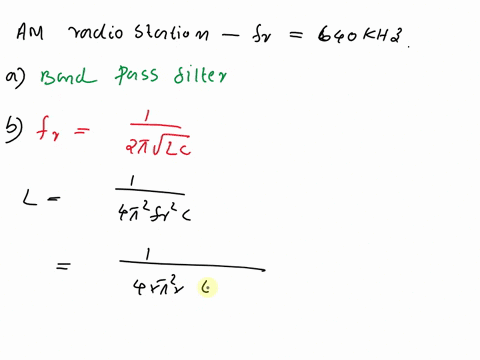 AM radio station - fr = 640 KHz.
a) Band Pass filter
b) fr = 1 / 2π√LC
L = 1 / 4π²fr²C
= 1 / 4×π²×6